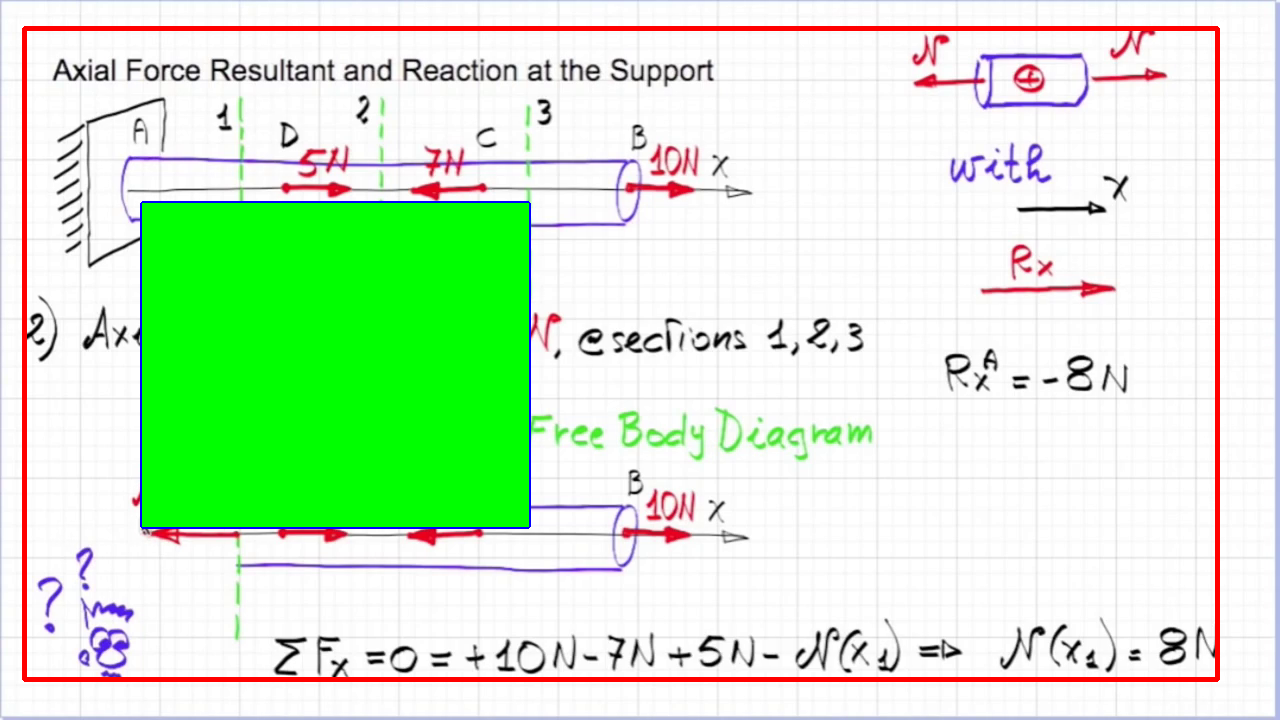 Axial Force Resultant and Reaction at the Support
N N
+
1 2 3
A D C B
5N 7N 10N x
with
x
Rx
2) , @ sections 1,2,3
RxA = -8N
Free Body Diagram
B
10N x
?
?
ΣFx = 0 = +10N-7N+5N- N(x1) => N(x1) = 8N